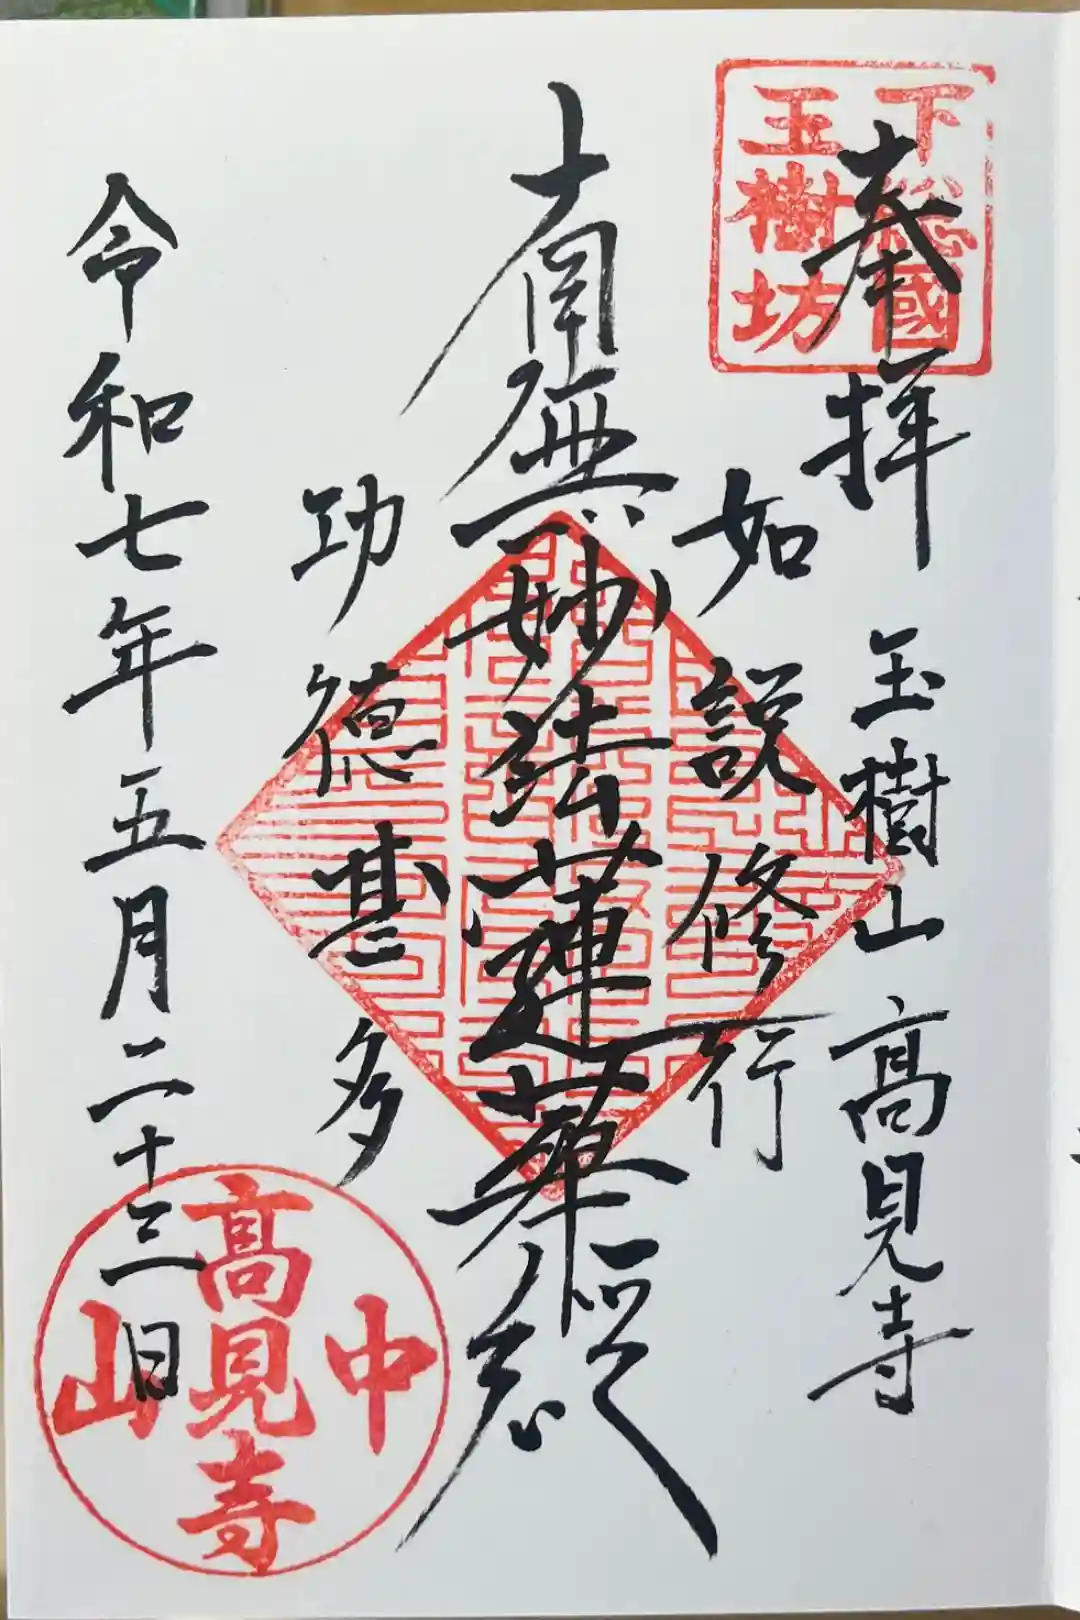 奉拝
玉樹山 高見寺
如説修行
南無妙法蓮華経
功徳甚多
令和七年五月二十三日
下総國
玉樹坊
中山
高見寺